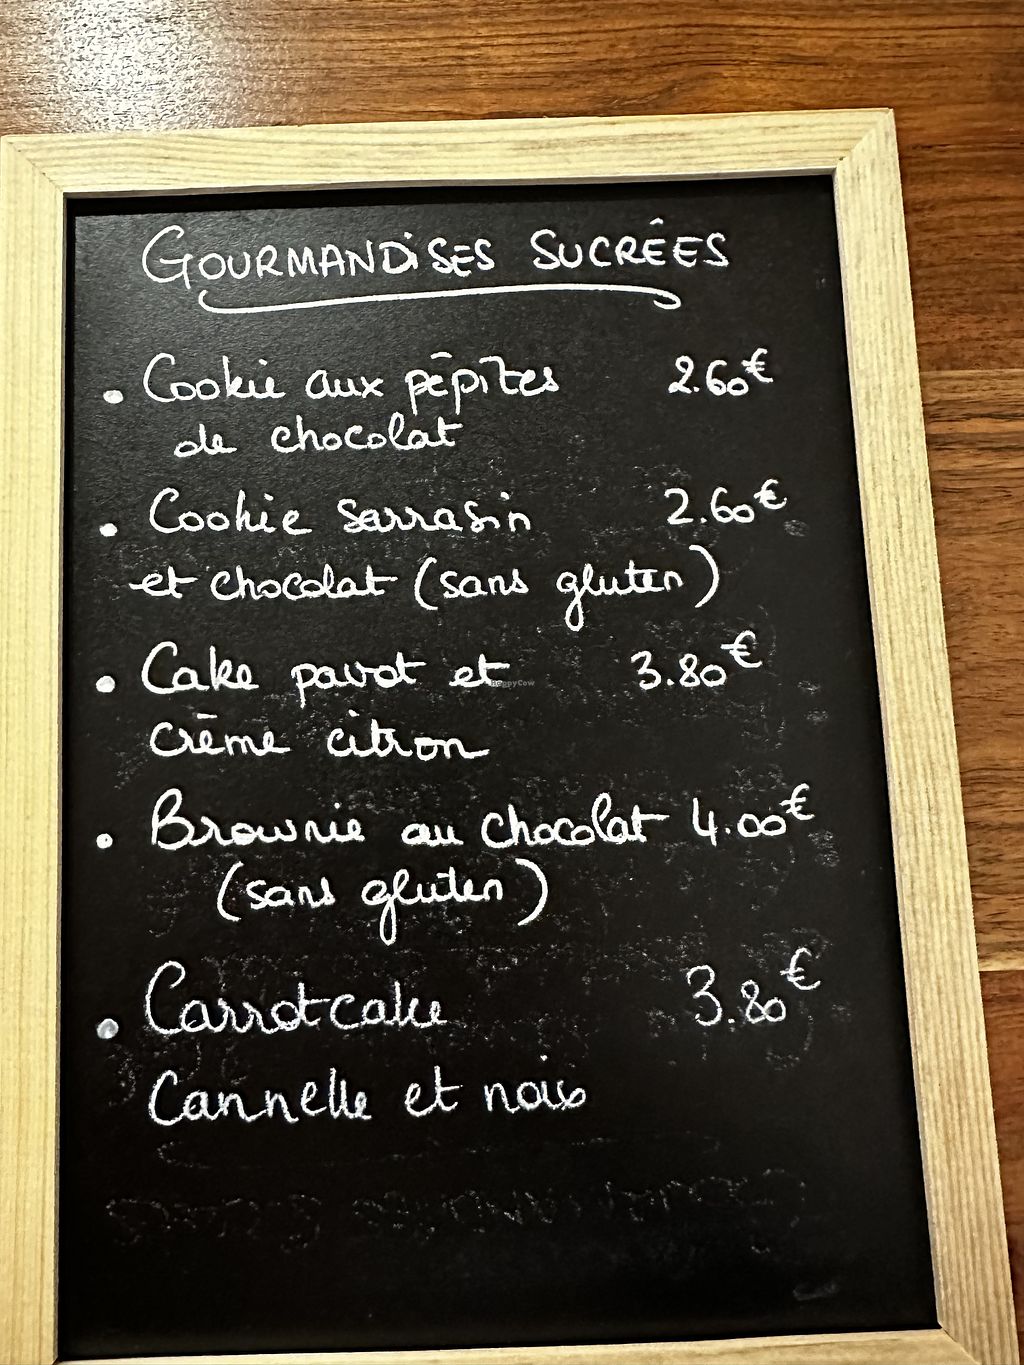 GOURMANDiSES SUCRÉES
• Cookie aux pépites 2.60€
de chocolat
• Cookie sarrasin 2.60€
et chocolat (sans gluten)
• Cake pavot et 3.80€
HappyCow
crème citron
• Brownie au chocolat 4.00€
(sans gluten)
• Carrotcake 3.80€
Cannelle et noix